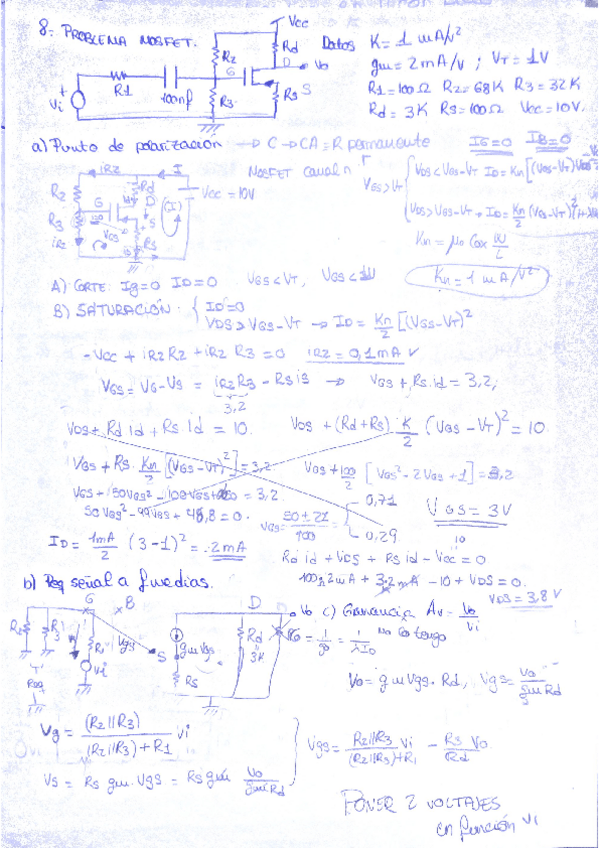 8.- PROBLEMA MOSFET.
Vcc
R2
Rd
D
Vo
G
S
R1
100nf
R3
Rs
+
Vi
Datos K = 1 mA/V²
gm = 2 mA/V ; VT = 1V
R1 = 100Ω R2 = 68K R3 = 32K
Rd = 3K Rs = 100Ω Vcc = 10V.
a) Punto de polarización → C → CA = R permanente IG=0 IB=0
MOSFET canal n
VGS>VT
VDS < VGS-VT ID = Kn [(VGS-VT)VDS
VDS > VGS-VT → ID = Kn/2 (VGS-VT)²
iR2
I
R2
Rd
D
(I)
Vcc = 10V
R3
G
S
VGS
iR2
Rs
Kn = μn Cox W/L
Kn = 1 mA/V²
A) CORTE: Ig=0 ID=0 VGS<VT, VGS<1V
B) SATURACIÓN: { ID=0
VDS > VGS-VT → ID = Kn/2 [(VGS-VT)²
-Vcc + iR2 R2 + iR2 R3 = 0 iR2 = 0,1mA
VGS = VG-VS = iR2R3 - Rs is → VGS + Rs.id = 3,2,
3,2
VDS + Rd id + Rs id = 10. VDS + (Rd+Rs) K/2 (VGS-VT)² = 10
VGS + Rs. Kn/2 [(VGS-VT)²] = 3,2 VGS + 100/2 [VGS² - 2VGS + 1] = 3,2
VGS + 50VGS² - 100VGS + 50 = 3,2.
50VGS² - 99VGS + 48,8 = 0. VGS = 50±21/100 0,71 0,29
VGS = 3V
ID = 1mA/2 (3-1)² = 2mA
Rd id + VDS + Rs id - Vcc = 0
100Ω 2mA + 3,2mA - 10 + VDS = 0.
VDS = 3,8V
b) Req señal a f medias.
G
B
R2
R3
R1
Vi
Vgs
S
Req
gmVgs
Rs
D
Rd
3K
Vo
c) Ganancia Av = Vo/Vi
ro = 1/go = 1/λID no lo tengo
Vo = gm Vgs. Rd, Vgs = Vo/gm Rd
Vg = (R2||R3)/(R2||R3)+R1 Vi
Vs = Rs gm. Vgs = Rs gm Vo/gm Rd
Vgs = R2||R3/(R2||R3)+R1 Vi - Rs Vo/Rd
PONER 2 VOLTAJES
en función Vi